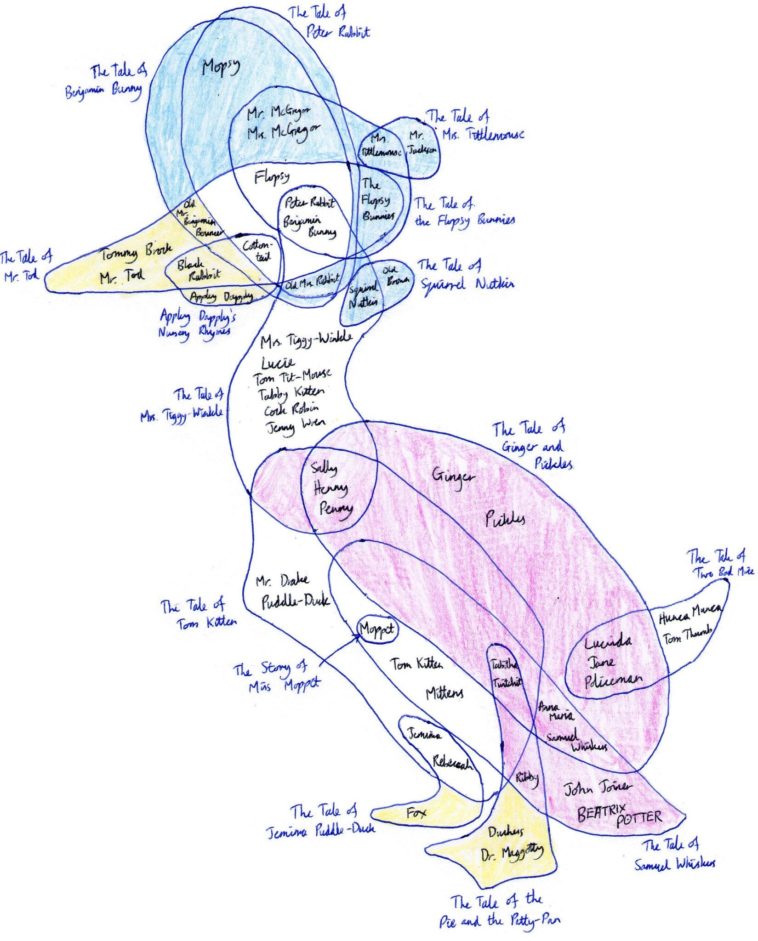 The Tale of
Peter Rabbit
The Tale of
Benjamin Bunny
Mopsy
Mr. McGregor
Mrs. McGregor
The Tale of
Mrs. Tittlemouse
Mrs.
Tittlemouse
Mr.
Jackson
Flopsy
The
Flopsy
Bunnies
Peter Rabbit
Benjamin
Bunny
The Tale of
the Flopsy Bunnies
Old
Mr.
Benjamin
Bouncer
The Tale of
Mr. Tod
Tommy Brock
Mr. Tod
Cotton-
tail
Black
Rabbit
Appley Dapply
Appley Dapply's
Nursery Rhymes
Old Mrs. Rabbit
Squirrel
Nutkin
Old
Brown
The Tale of
Squirrel Nutkin
Mrs. Tiggy-Winkle
Lucie
Tom Tit-Mouse
Tabby Kitten
Cock Robin
Jenny Wren
The Tale of
Mrs. Tiggy-Winkle
The Tale of
Ginger and
Pickles
Sally
Henny
Penny
Ginger
Pickles
The Tale of
Two Bad Mice
Hunca Munca
Tom Thumb
Lucinda
Jane
Policeman
Mr. Drake
Puddle-Duck
The Tale of
Tom Kitten
Moppet
The Story of
Miss Moppet
Tom Kitten
Mittens
Tabitha
Twitchit
Anna
Maria
Samuel
Whiskers
Jemima
Rebeccah
Ribby
John Joiner
BEATRIX
POTTER
Fox
The Tale of
Jemima Puddle-Duck
Duchess
Dr. Maggotty
The Tale of
Samuel Whiskers
The Tale of the
Pie and the Patty-Pan